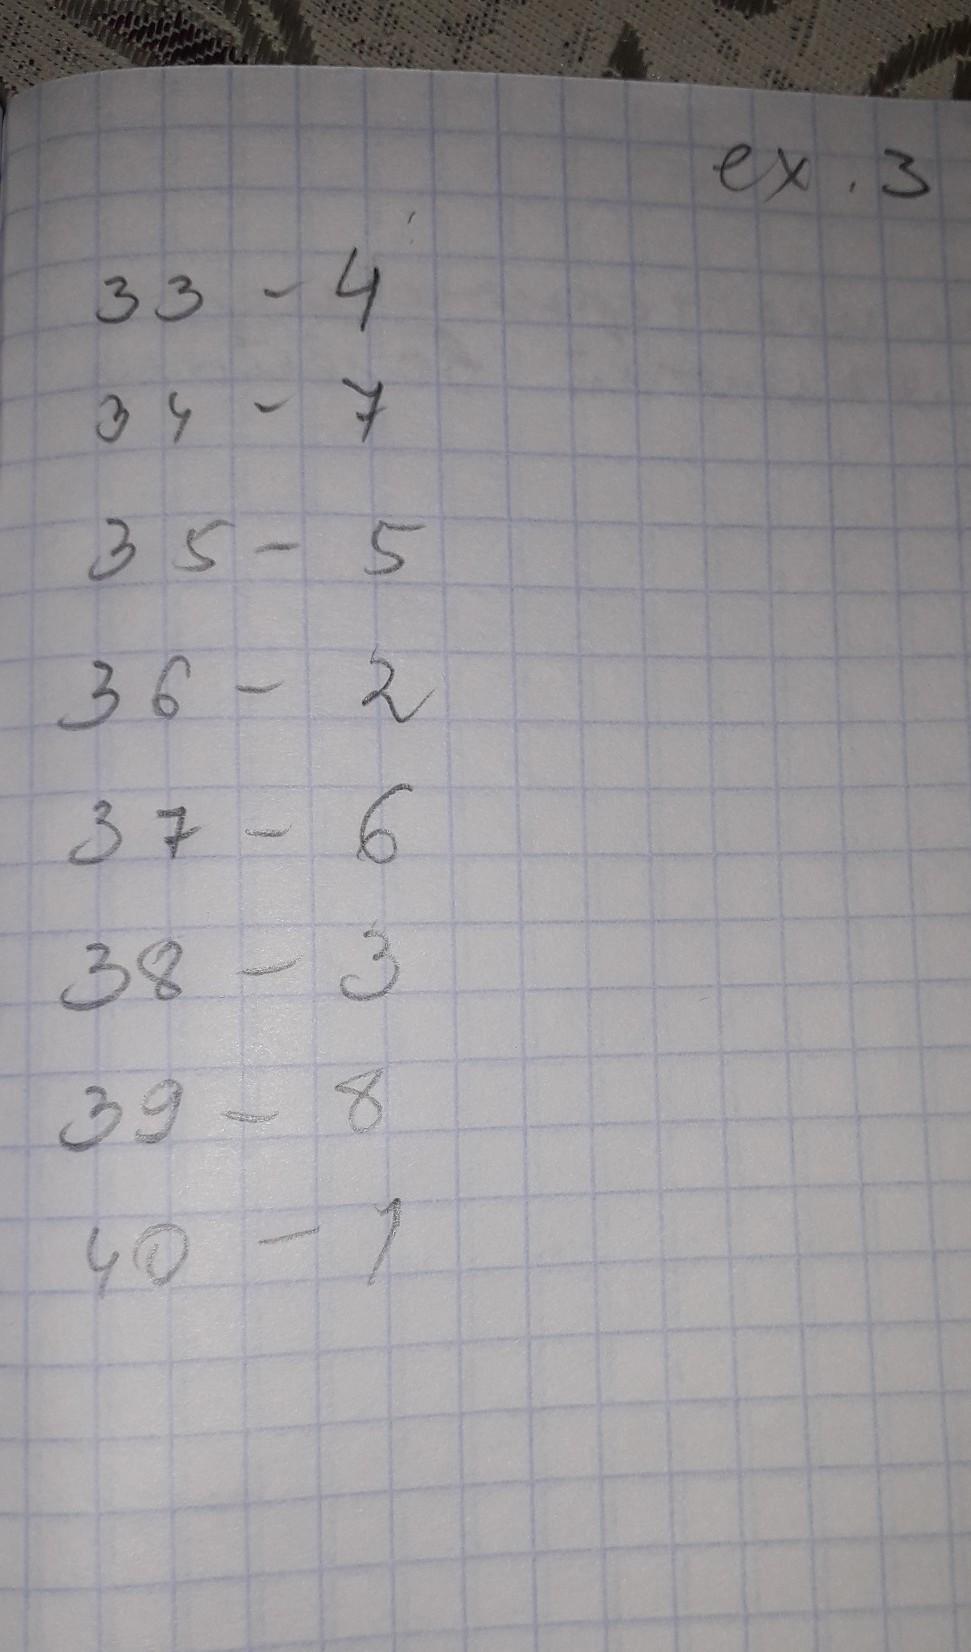 ex. 3
33 - 4
34 - 7
35 - 5
36 - 2
37 - 6
38 - 3
39 - 8
40 - 1